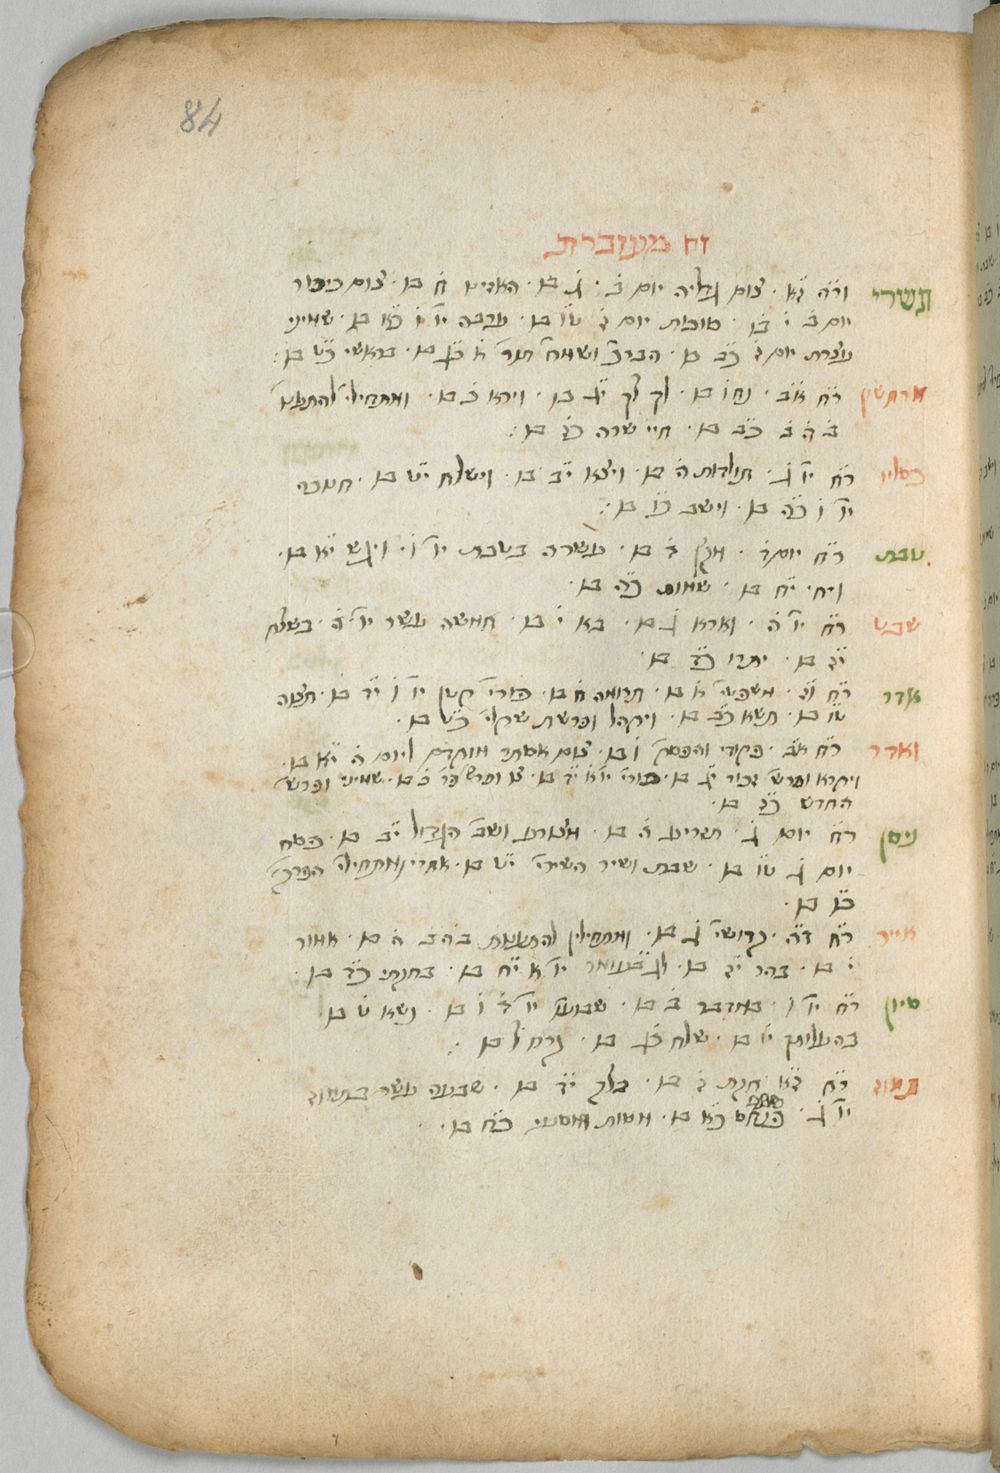 84
זח מעוברת
תשרי ור״ה ז״א · צום גדליה יום ב̇ · ג̇ בו · האזינו ח̇ בו · צום כיפור
יום ב̇ י̇ בו · סוכות יום ז̇ ט״ו בו · ערבה יו׳ ו̇ כ״א בו · שמיני
עצרת יום ז̇ כ״ב בו · הברכ׳ ושמח׳ תור׳ א̇ כ״ג בו · בראשי׳ כ״ט בו :
מרחשון ר״ח א״ב · נח ו̇ בו · לך לך י״ג בו · וירא כ̇ בו · ומתחיל׳ להתענו׳
ב̇ ה̇ ב̇ כ״ב בו · חיי שרה כ״ז בו :
כסליו ר״ח יו׳ ג̇ · תולדות ה̇ בו · ויצא י״ב בו · וישלח י״ט בו · חנוכה
יו׳ ו̇ כ״ה בו · וישב כ״ו בו :
טבת ר״ח יום ד̇ · מקץ ד̇ בו · עשרה בטבת יו׳ ו̇ · ויגש י״א בו ·
ויחי י״ח בו · שמות כ״ה בו ·
שבט ר״ח יו׳ ה̇ · וארא ג̇ בו · בא י̇ בו · חמשה עשר יו׳ ה̇ · בשלח
י״ז בו · יתרו כ״ד בו ·
אדר ר״ח ו״ז · משפטי׳ א̇ בו · תרומה ח̇ בו · פורי׳ קטן יו׳ ו̇ י״ד בו · תצוה
ט״ו בו · תשא כ״ב בו · ויקהל ופרשת שקלי׳ כ״ט בו ·
ואדר ר״ח א״ב · פקודי והפסק׳ ו̇ בו · צום אסתר מוקדם ליום ה̇ י״א בו ·
ויקרא ופרש׳ זכור י״ג בו · פורי׳ יו׳ א̇ י״ד בו · צו ופרש׳ פר׳ כ̇ בו · שמיני ופרש׳
החדש כ״ז בו ·
ניסן ר״ח יום ג̇ · תזריע ה̇ בו · מצורע ושב׳ הגדול י״ב בו · פסח
יום ג̇ ט״ו בו · שבת ושיר השירי׳ י״ט בו · אחרי ומתחיל׳ הפרק׳
כ״ו בו ·
אייר ר״ח ד״ה · קדושי׳ ג̇ בו · ומתחילין להתענות ב̇ה̇ב̇ ה̇ בו · אמור
י̇ בו · בהר י״ז בו · ל״ג בעומר יו׳ א̇ י״ח בו · בחקתי כ״ד בו ·
סיון ר״ח יו׳ ו̇ · במדבר ב̇ בו · שבועו׳ יו׳ ד̇ ו̇ בו · נשא ט̇ בו
בהעלותך י״ו בו · שלח כ״ג בו · קרח ל̇ בו :
תמוז ר״ח ז״א חקת ז̇ בו · בלק י״ד בו · שבעה עשר בתמוז
יו׳ ג̇ · פנחס כ״א בו · מטות ומסעי כ״ח בו ·